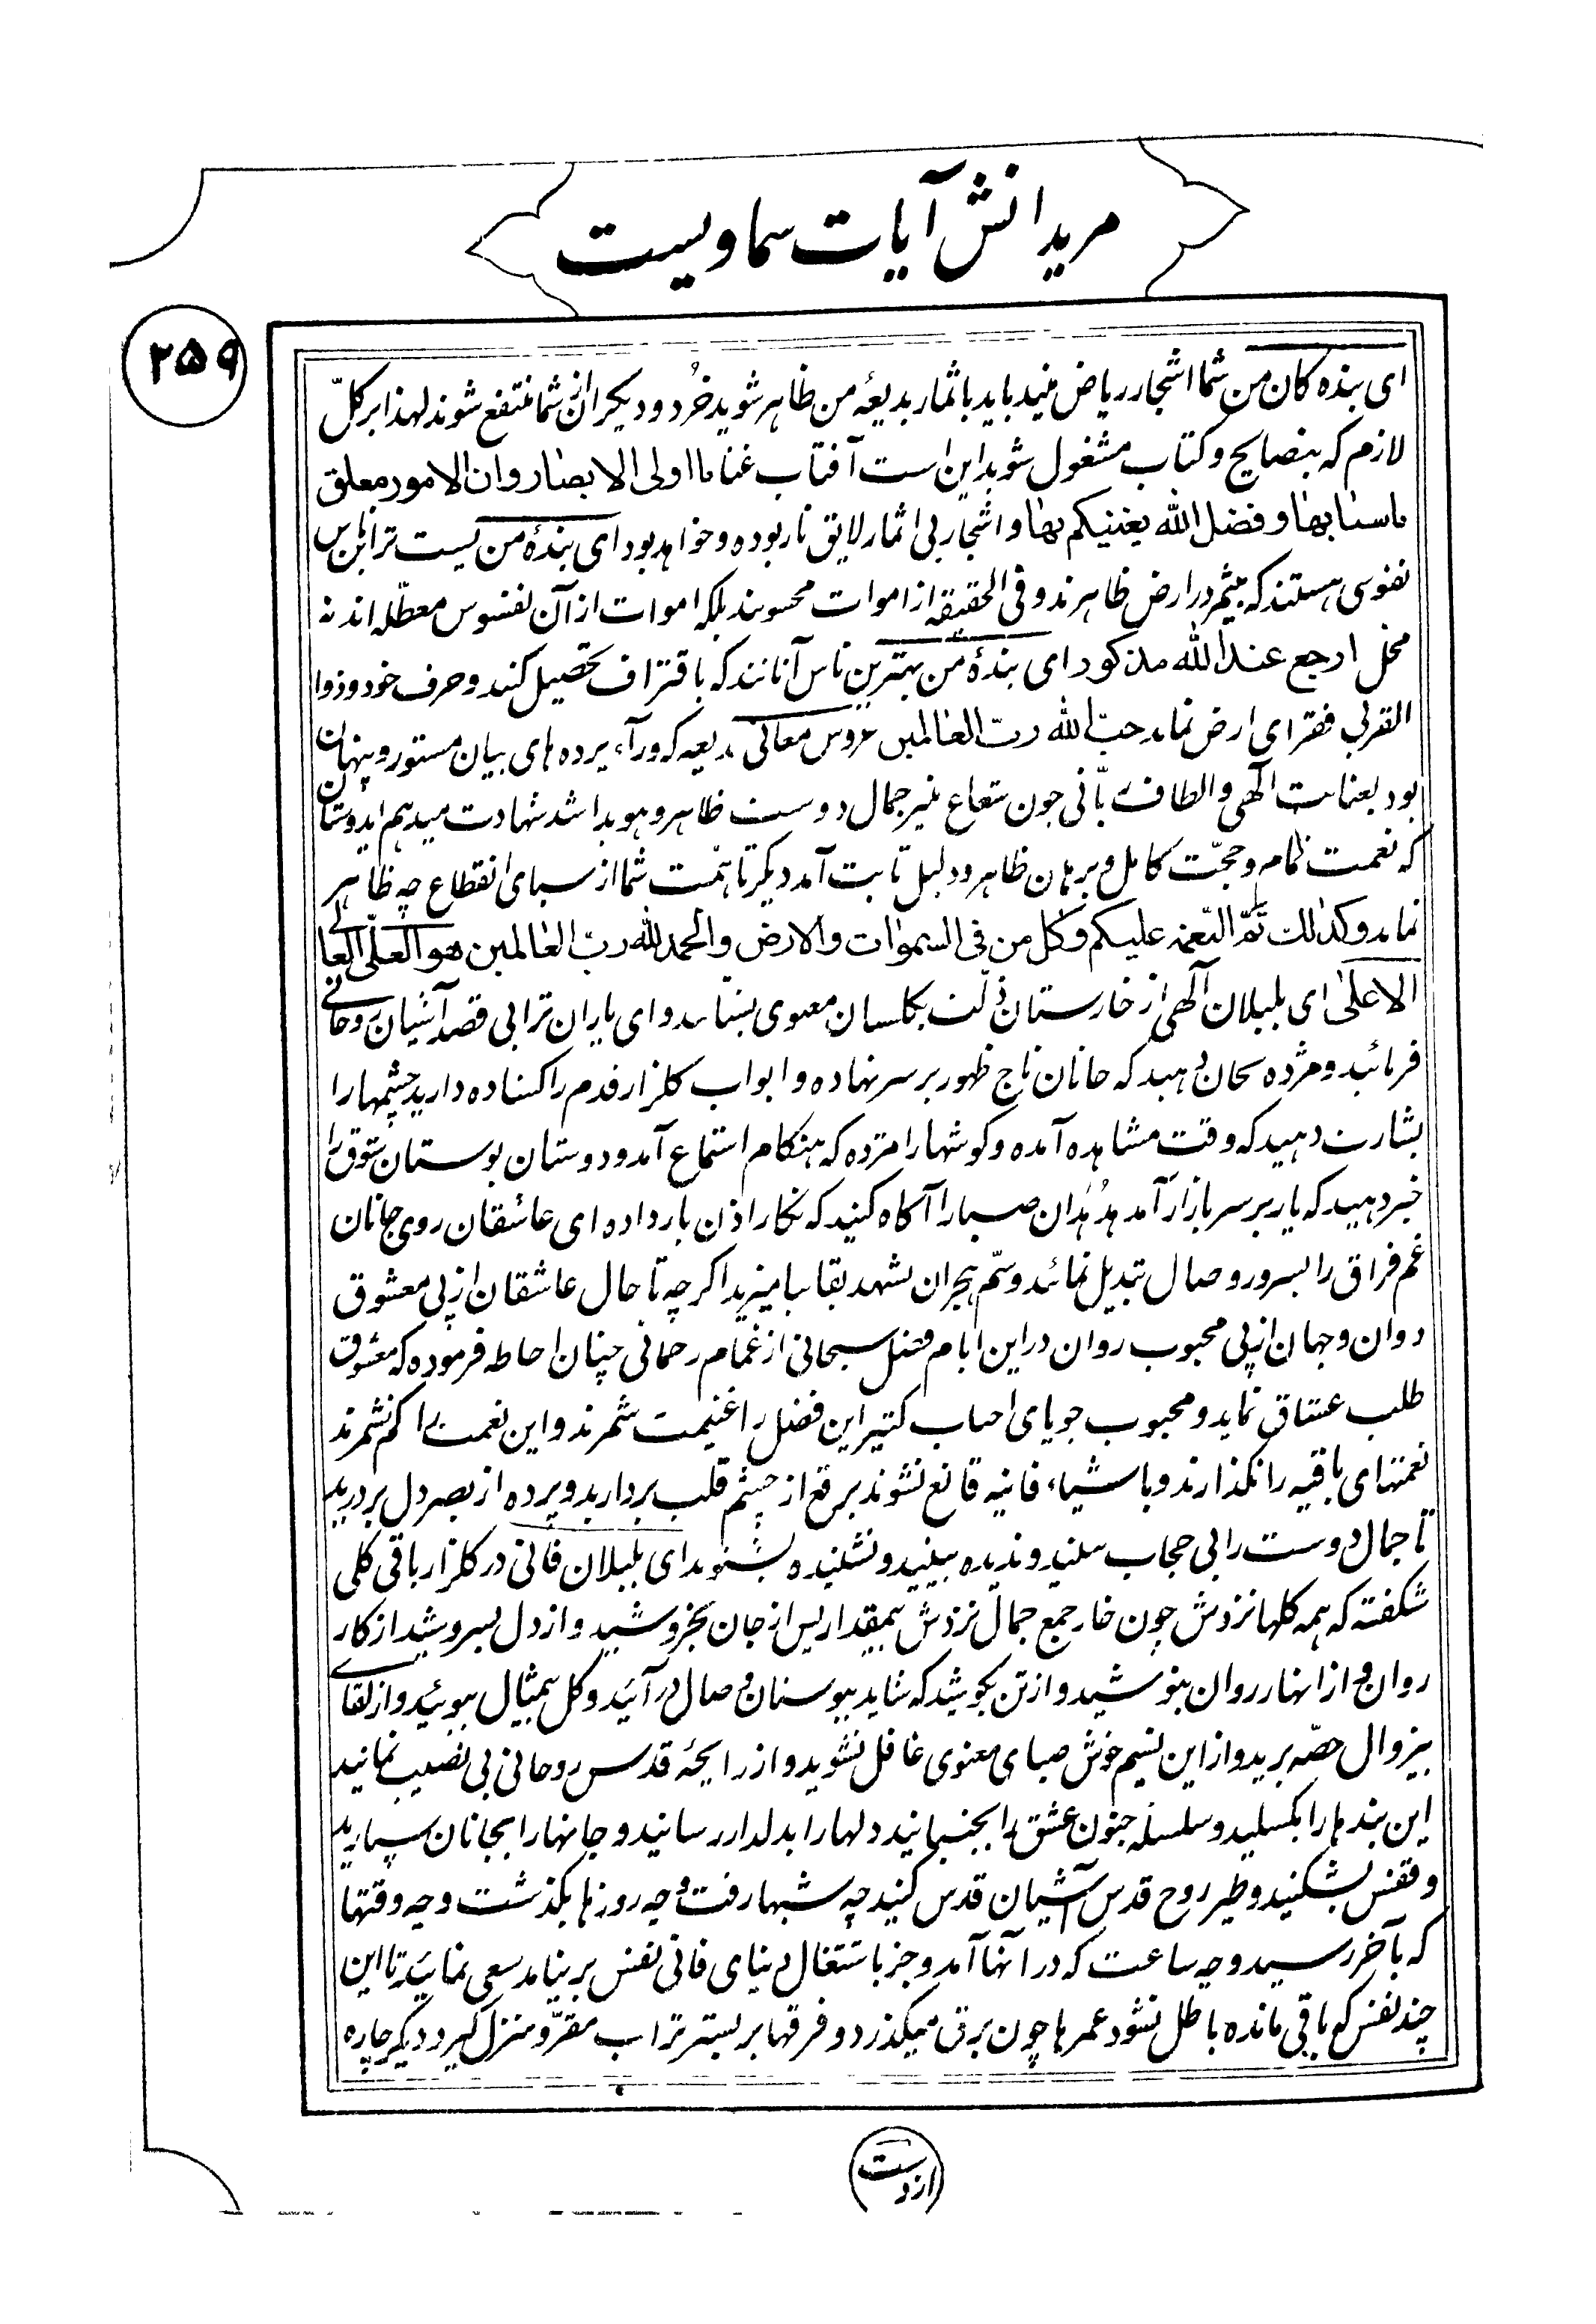 مریدانش آیات سماویست
۲۵۹
ای بنده کان من شما اشجار ریاض منید باید باثمار بدیعهٔ من ظاهر شوید خود و دیگران از شما منتفع شوند لهذا بر کلّ
لازم که بنصایح و کتاب مشغول شوید این است آفتاب غنا یا اولی الابصار و ان الامور معلق
باسبابها و فضل الله یغنیکم بها و اشجار بی اثمار لایق نار بوده و خواهد بود ای بندهٔ من پست ترین ناس
نفوسی هستند که بیثمر در ارض ظاهرند و فی الحقیقه از اموات محسوبند بلکه اموات از آن نفوس معطّله اند نه
ارجع عند الله مذکور ای بندهٔ من بهترین ناس آنانند که باقتراف تحصیل کنند و صرف خود و ذوا
القربی فقرای ارض نماید حبّا لله ربّ العالمین عروس معانی بدیعه که ورآء پرده های بیان مستور و پنهان
بود بعنایت آلهی و الطاف ربّانی چون شعاع منیر جمال دوست ظاهر و هویدا شد شهادت میدهم ایدوستان
که نعمت تمام و حجّت کامل و برهان ظاهر و دلیل ثابت آمد دیگر تا همّت شما از سبای انقطاع چه ظاهر
نماید و کذلک تمّ النّعمه علیکم و کل من فی السموات و الارض و الحمد لله ربّ العالمین هو العلیّ العا
لی الاعلی ای بلبلان آلهی از خارستان ذلّت بگلستان معنوی بشتابید و ای یاران ترابی قصد آشیان روحانی
فرمائید و مژده بجان دهید که جانان تاج ظهور بر سر نهاده و ابواب گلزار قدم را گشاده دارید چشمها را
بشارت دهید که وقت مشاهده آمده و گوشها را مژده که هنگام استماع آمد و دوستان بوستان شوق را
خبر دهید که یار بر سر بازار آمد هدهدان صبا را آگاه کنید که نگار اذن بار داده ای عاشقان روی جانان
غم فراق را بسرور وصال تبدیل نمائید و سّم هجران بشهد بقا بیامیزید اگر چه تا حال عاشقان از پی معشوق
دوان و جهان از پی محبوب روان در این ایام فضل سبحانی از غمام رحمانی چنان احاطه فرموده که معشوق
طلب عشاق نماید و محبوب جویای احباب گشته این فضل را غنیمت شمرند و این نعمت را کم نشمرند
نعمتهای باقیه را نگذارند و باشیاء فانیه قانع نشوند برقع از چشم قلب بردارید و پرده از بصر دل بردرید
تا جمال دوست را بی حجاب بینید و ندیده ببینید و نشنیده بشنوید ای بلبلان فانی در گلزار باقی گلی
شکفته که همه گلها نزدش چون خار جمع جمال نزدش بیمقدار پس از جان بخروشید و از دل بسروشید از کار
روان و از انهار روان بنوشید و از تن بکوشید که شاید ببوستان وصال درآئید و گل بیمثال ببوئید و از لقای
بیزوال حصّه برید و از این نسیم خوش صبای معنوی غافل نشوید و از رایحهٔ قدس روحانی بی نصیب نمانید
این بندها را بگسلید و سلسله جنون عشق را بجنبانید دلها را بدلدار رسانید و جانها را بجانان سپارید
و قفس بشکنید و طیر روح قدس آشیان قدس کنید چه شبها رفت و چه روزها بگذشت و چه وقتها
که بآخر رسید و چه ساعت که در انها آمد و جز باشتغال دنیای فانی نفس بر نیامد سعی نمائید تا این
چند نفس که باقی مانده باطل نشود عمرها چون برق میگذرد و فرقها بر بستر تراب مقرّ و منزل گیرد دیگر چاره
از دست